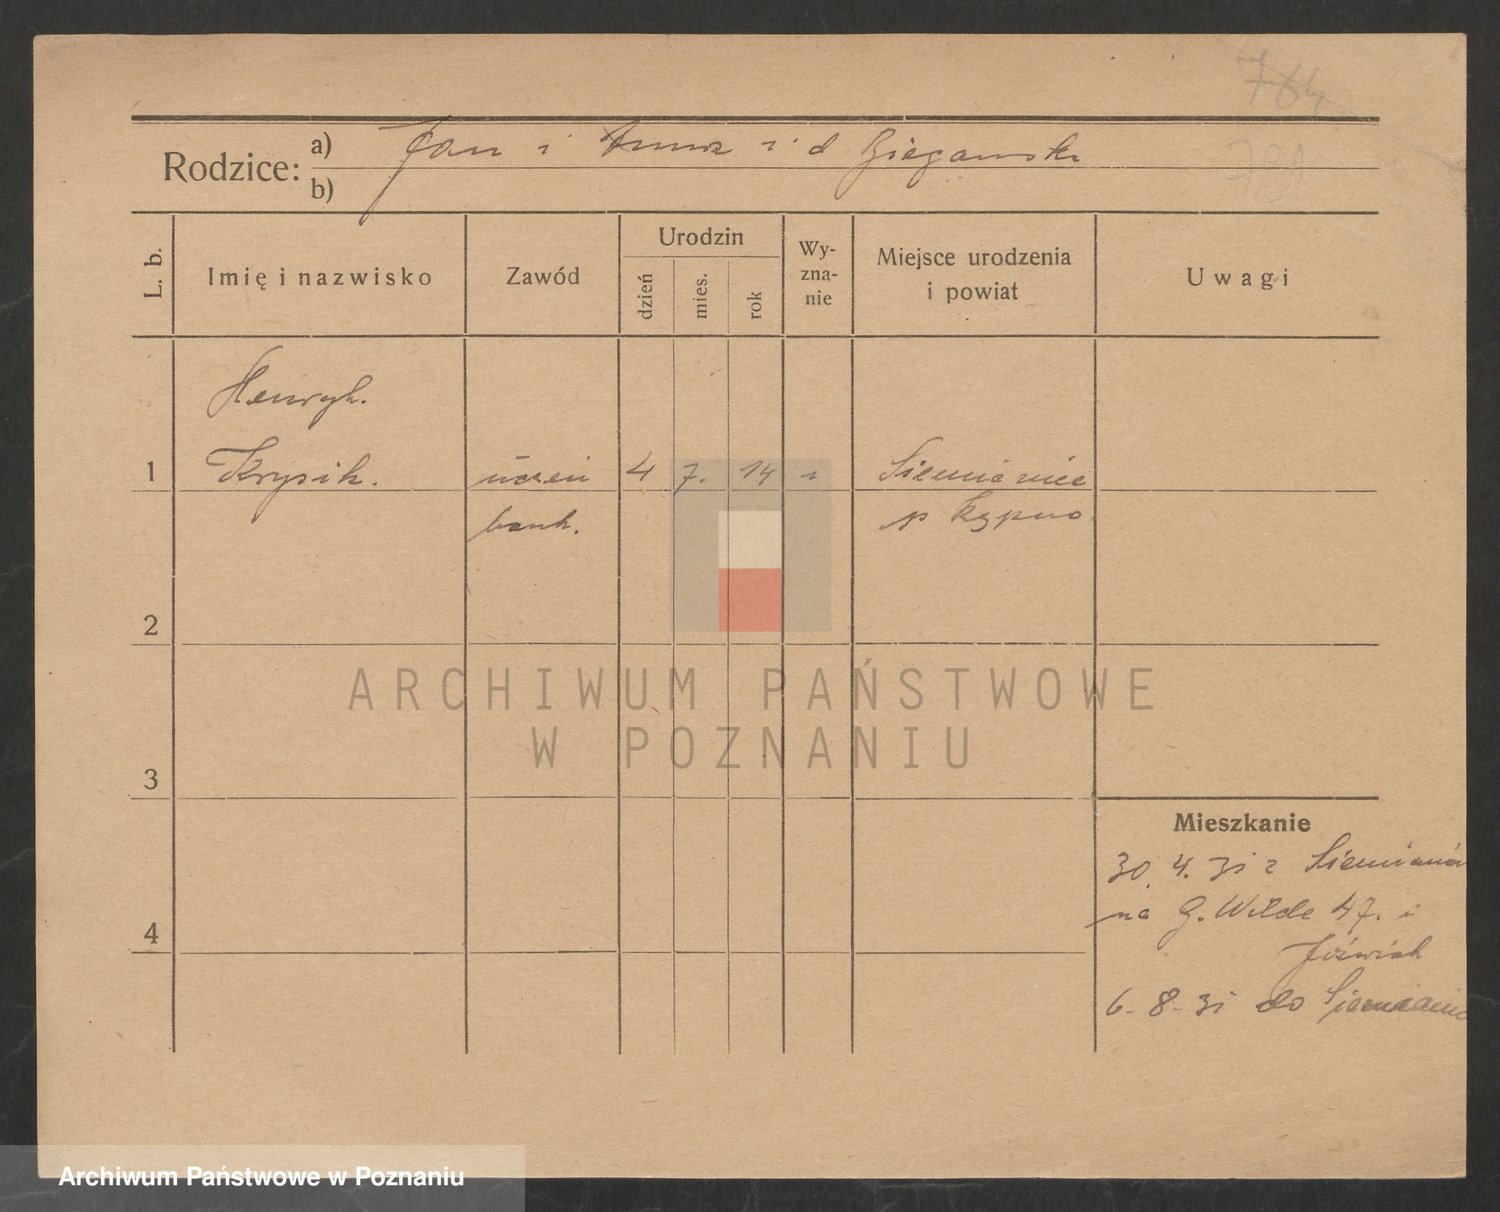 764
Rodzice: a) Jan i Anna z d Biegańska
b)
781
L. b.
Imię i nazwisko
Zawód
Urodzin
dzień
mies.
rok
Wy-
zna-
nie
Miejsce urodzenia
i powiat
Uwagi
Henryk.
1 Krysik. uczeń 4 7. 14 r Siemianice
bank. p Kępno
2
3
4
Mieszkanie
30. 4. 31 z Siemianic
na G. Wilde 47. i
Jóźwiak
6-8-31 do Siemianic
ARCHIWUM PAŃSTWOWE
W POZNANIU
Archiwum Państwowe w Poznaniu